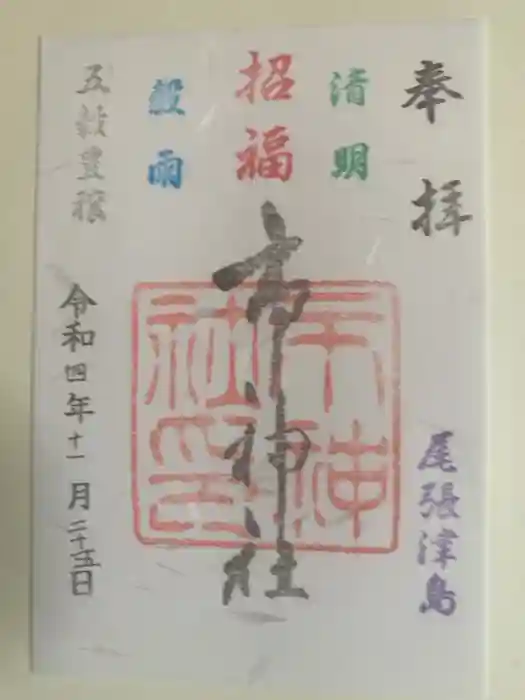 奉拝
清明
招福
穀雨
五穀豊穣
市神社
市神社印
尾張津島
令和四年十一月二十五日